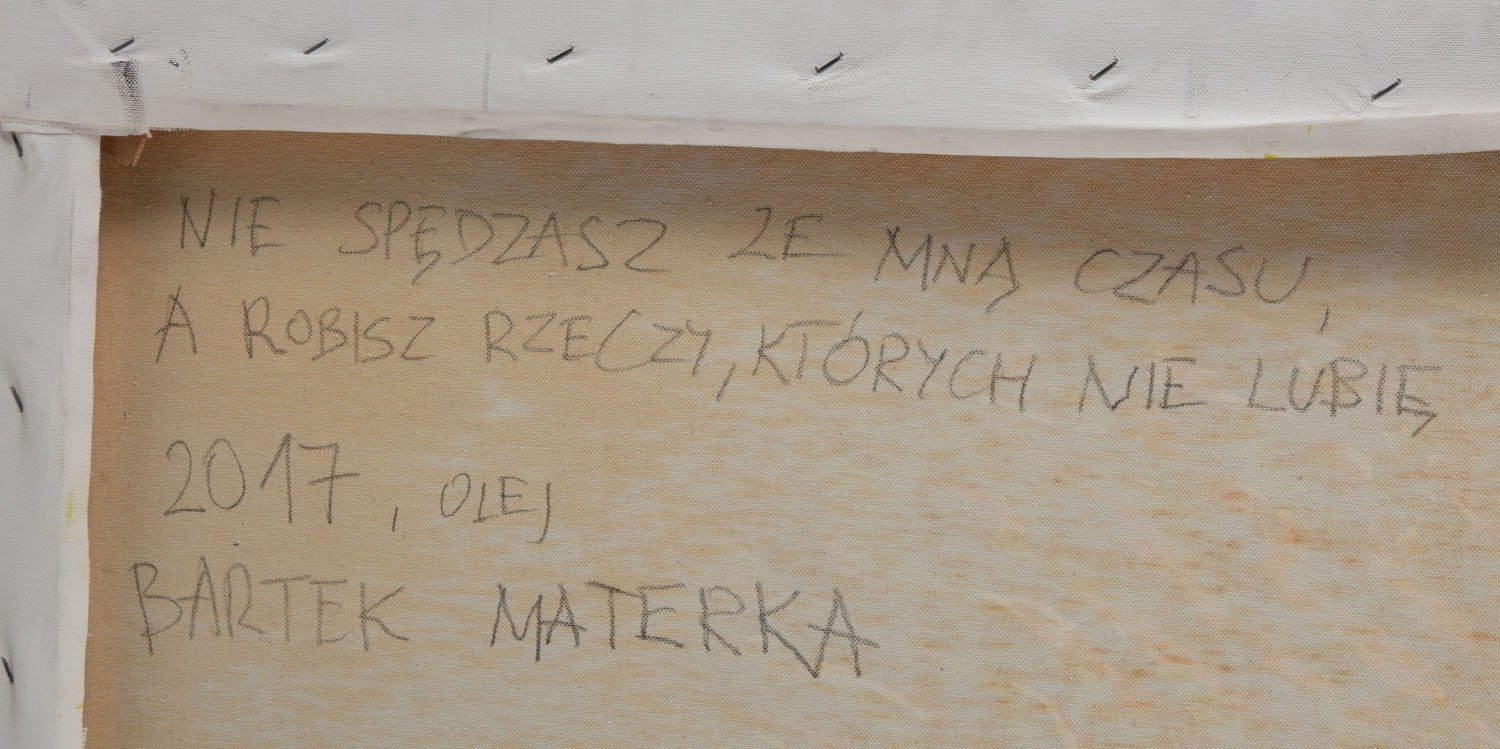 NIE SPĘDZASZ ZE MNĄ CZASU,
A ROBISZ RZECZY, KTÓRYCH NIE LUBIĘ
2017, OLEJ
BARTEK MATERKA